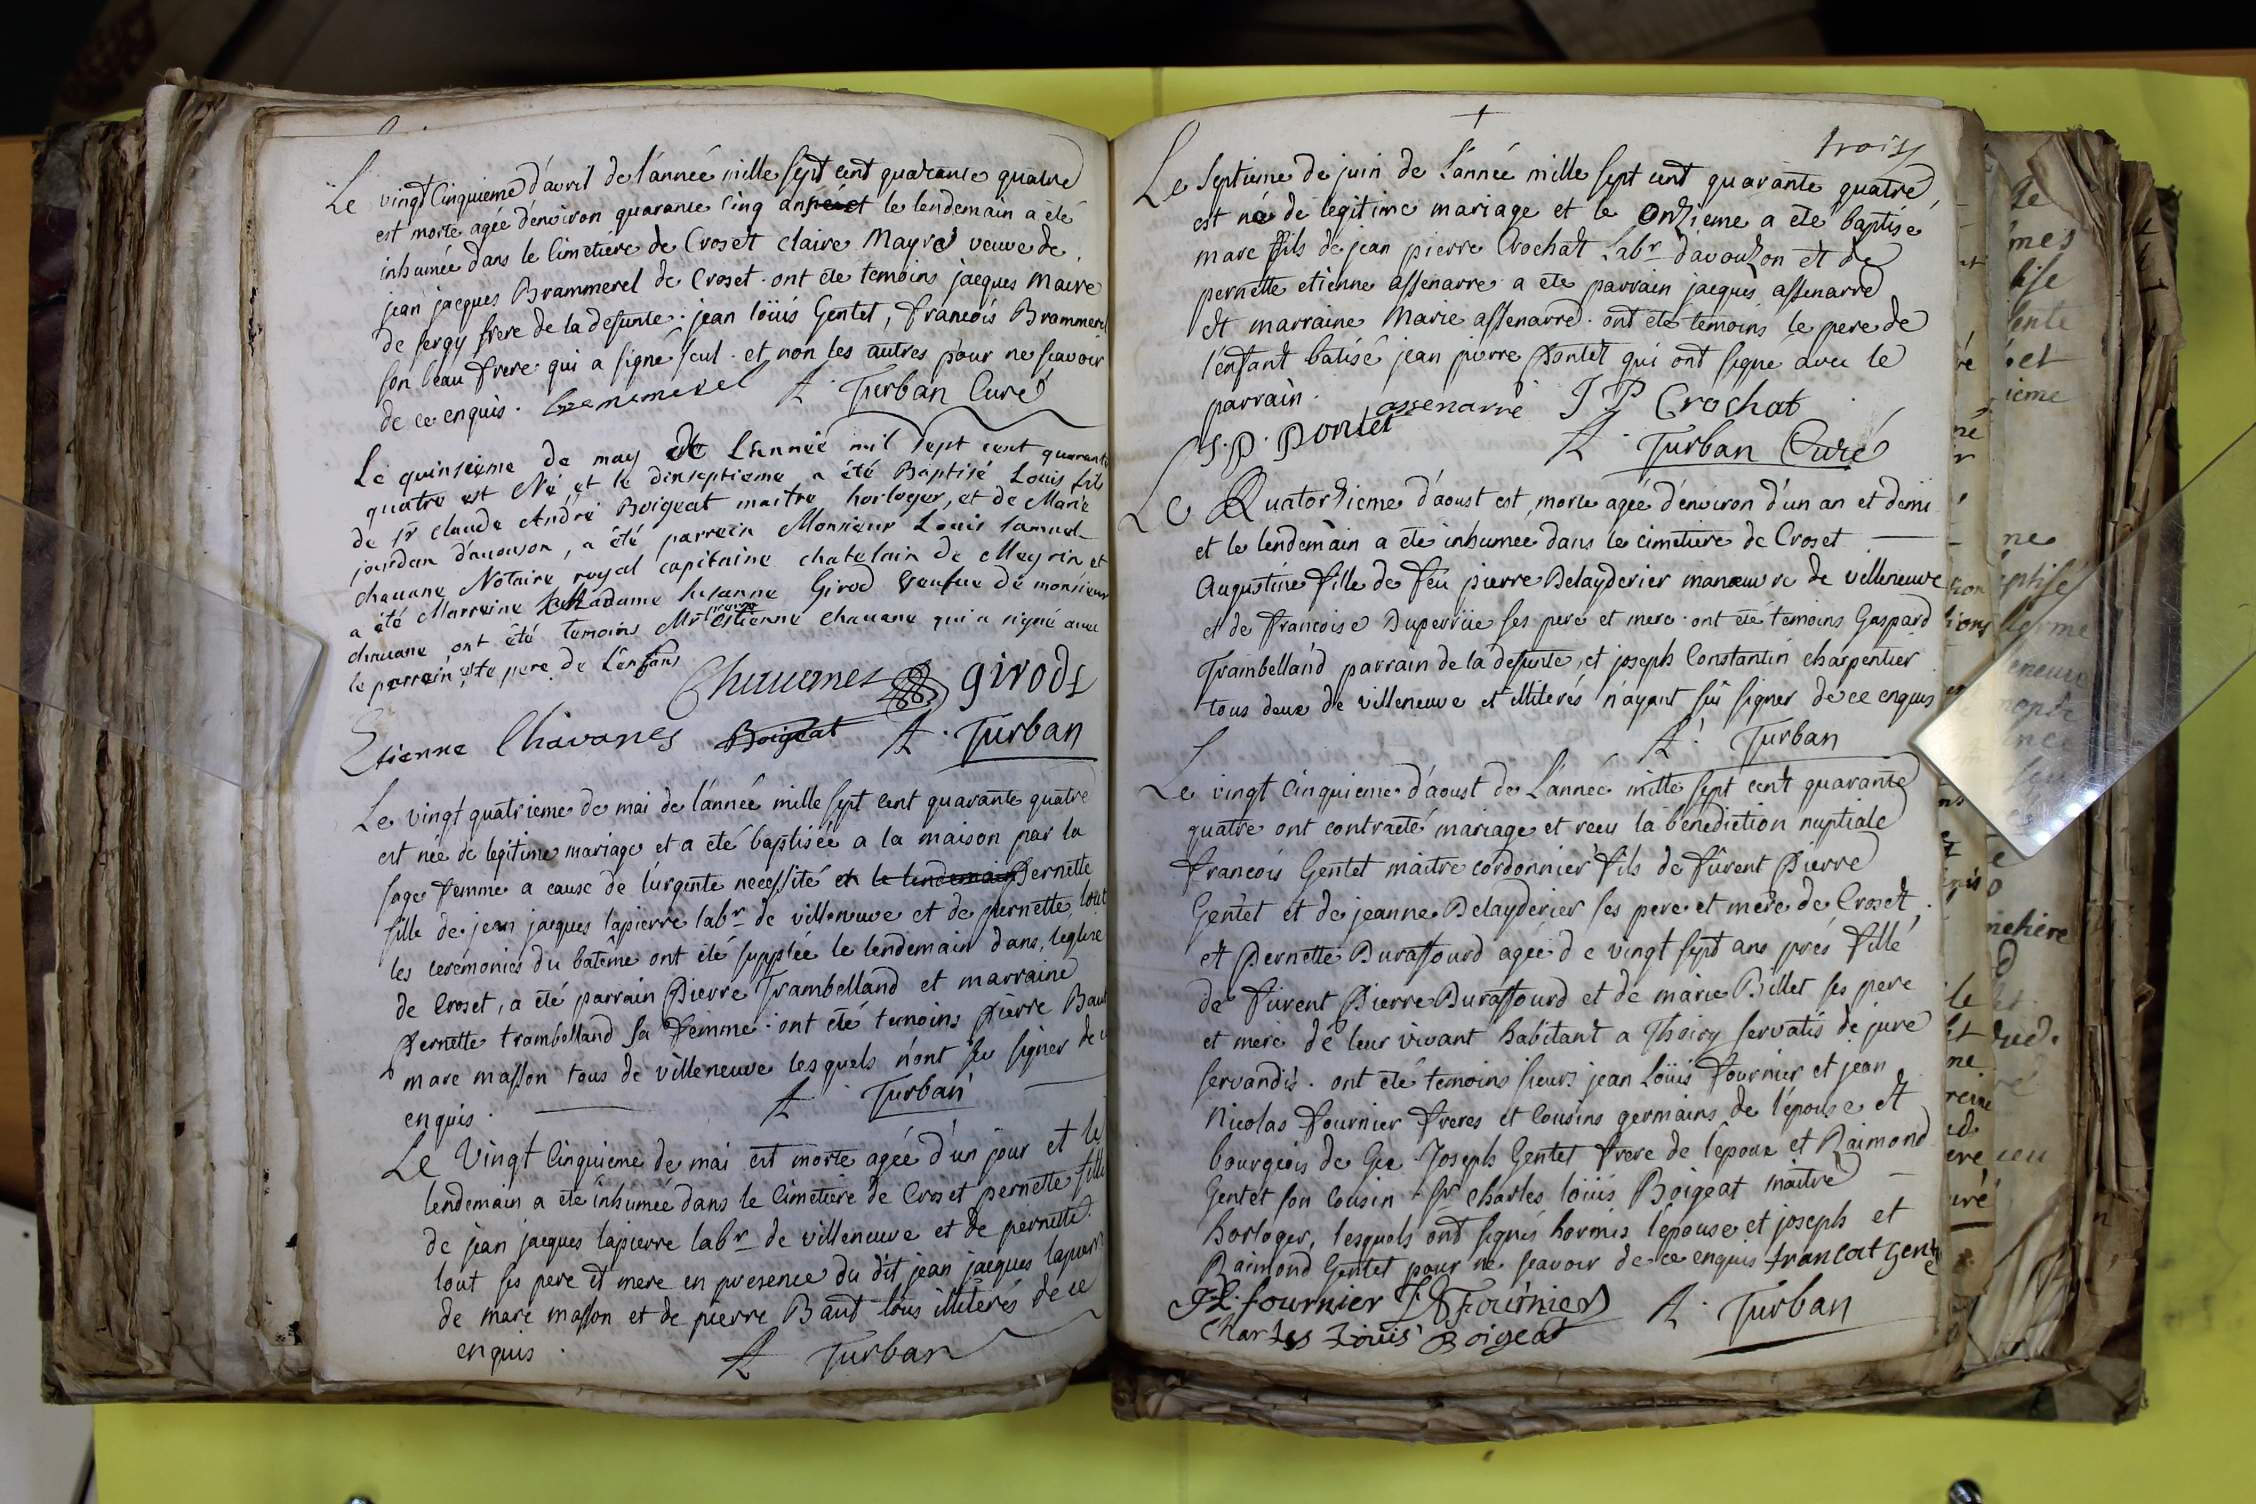 Le vingt Cinquieme d'avril de l'année mille sept cent quarante quatre
est morte agée d'environ quarante cinq ans et le lendemain a été
inhumée dans le Cimetière de Croset claire Mayre veuve de
jean jacques Brammerel de Croset. ont été temoins jacques Maire
de sergy frere de la defunte. jean loüis Gentet, francois Brammerel
son beau frere qui a signé seul. et non les autres pour ne scavoir
de ce enquis. Bramerel A. Turban Curé
Le quinsieme de may de L'année mil sept cent quarante
quatre est Né, et le dinseptieme a été Baptisé Louis fils
de sr claude André Boigeat maitre horloger, et de Marie
jourdan d'auouson, a été parrein Monsieur Louis samuel
chauane Notaire royal capitaine chatelain de Meyrin et
a été Marreine Madame susanne Girod veufue de monsieur
chauane ont été temoins Mr estienne chauane qui a signé auec
le parrein, et le pere de L'enfans
Chauanes girods
Etienne Chavanes Boigeat A. Turban
Le vingt quatrieme de mai de l'année mille sept cent quarante quatre
est née de legitime mariage et a été baptisée a la maison par la
sage femme a cause de l'urgente necessité et le lendemain Pernette
fille de jean jacques lapierre labr de villeneuve et de pernette lout
les ceremonies du batême ont été supplée le lendemain dans leglise
de Croset, a été parrain Pierre Trambelland et marraine
Pernette trambelland sa femme. ont été temoins Pierre Baut
marc masson tous de villeneuve lesquels n'ont sçu signer de ce
enquis. A. Turban
Le Vingt Cinquieme de mai est morte agée d'un jour et le
lendemain a été inhumée dans le Cimetière de Croset pernette fille
de jean jacques lapierre labr de villeneuve et de pernette
lout ses pere et mere en presence du dit jean jacques lapierre
de marc masson et de pierre Baut tous illiterés de ce
enquis. A Turban
trois
Le septieme de juin de l'année mille sept cent quarante quatre
est né de legitime mariage et le onzieme a été baptisé
marc fils de jean pierre Crochat Labr d'avouzon et de
pernette etienne assenarre a été parrain jacques assenarre
et marraine Marie assenarre. ont été temoins le pere de
l'enfant batisé jean pierre Pontet qui ont signé avec le
parrain. assenarre J P Crochat
J. P. Pontet A. Turban Curé
Le Quatorzieme d'aoust est morte agée d'environ d'un an et demi
et le lendemain a été inhumée dans le cimetiere de Croset
Augustine fille de feu pierre Delayderier manœuvre de villeneuve
et de francoise Duperrüe ses pere et mere. ont été temoins Gaspard
Trambelland parrain de la defunte, et joseph Constantin charpentier
tous deux de villeneuve et illiterés n'ayant sçu signer de ce enquis
A. Turban
Le vingt Cinquieme d'aoust de L'année mille sept cent quarante
quatre ont contracté mariage et recu la benediction nuptiale
francois Gentet maitre cordonnier fils de fürent Pierre
Gentet et de jeanne Delayderier ses pere et mere de Croset,
et Pernette Duraffourd agée de vingt sept ans prés fille
de fürent Pierre Duraffourd et de marie Billet ses pere
et mere de leur vivant habitant a Thoiry servatis de jure
servandis. ont été temoins sieurs jean Loüis fournier et jean
Nicolas fournier freres et Cousins germains de l'épouse et
bourgeois de Gex. Joseph Gentet frere de l'époux et Raimond
Gentet son Cousin. sr Charles loüis Boigeat maitre
horloger, lesquels ont signés hormis l'épouse et joseph et
Raimond Gentet pour ne scavoir de ce enquis
J L. fournier J N Fournier A. Turban
Charles Louis Boigeat